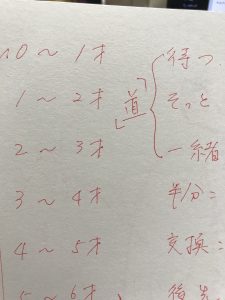 0～1才 待つ
1～2才 「道」 そっと
2～3才 一緒
3～4才 半分こ
4～5才 交換こ
5～6才